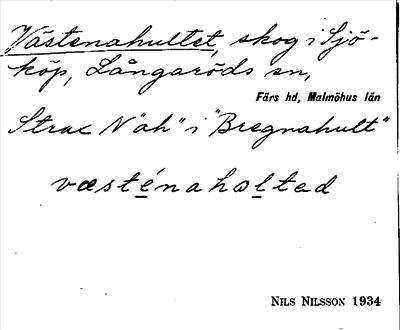 Västenahultet, skog i Sjö-
köp, Långaröds sn,
Färs hd, Malmöhus län
Strax N "ah" i "Bregnahult"
væsténaholtad
NILS NILSSON 1934